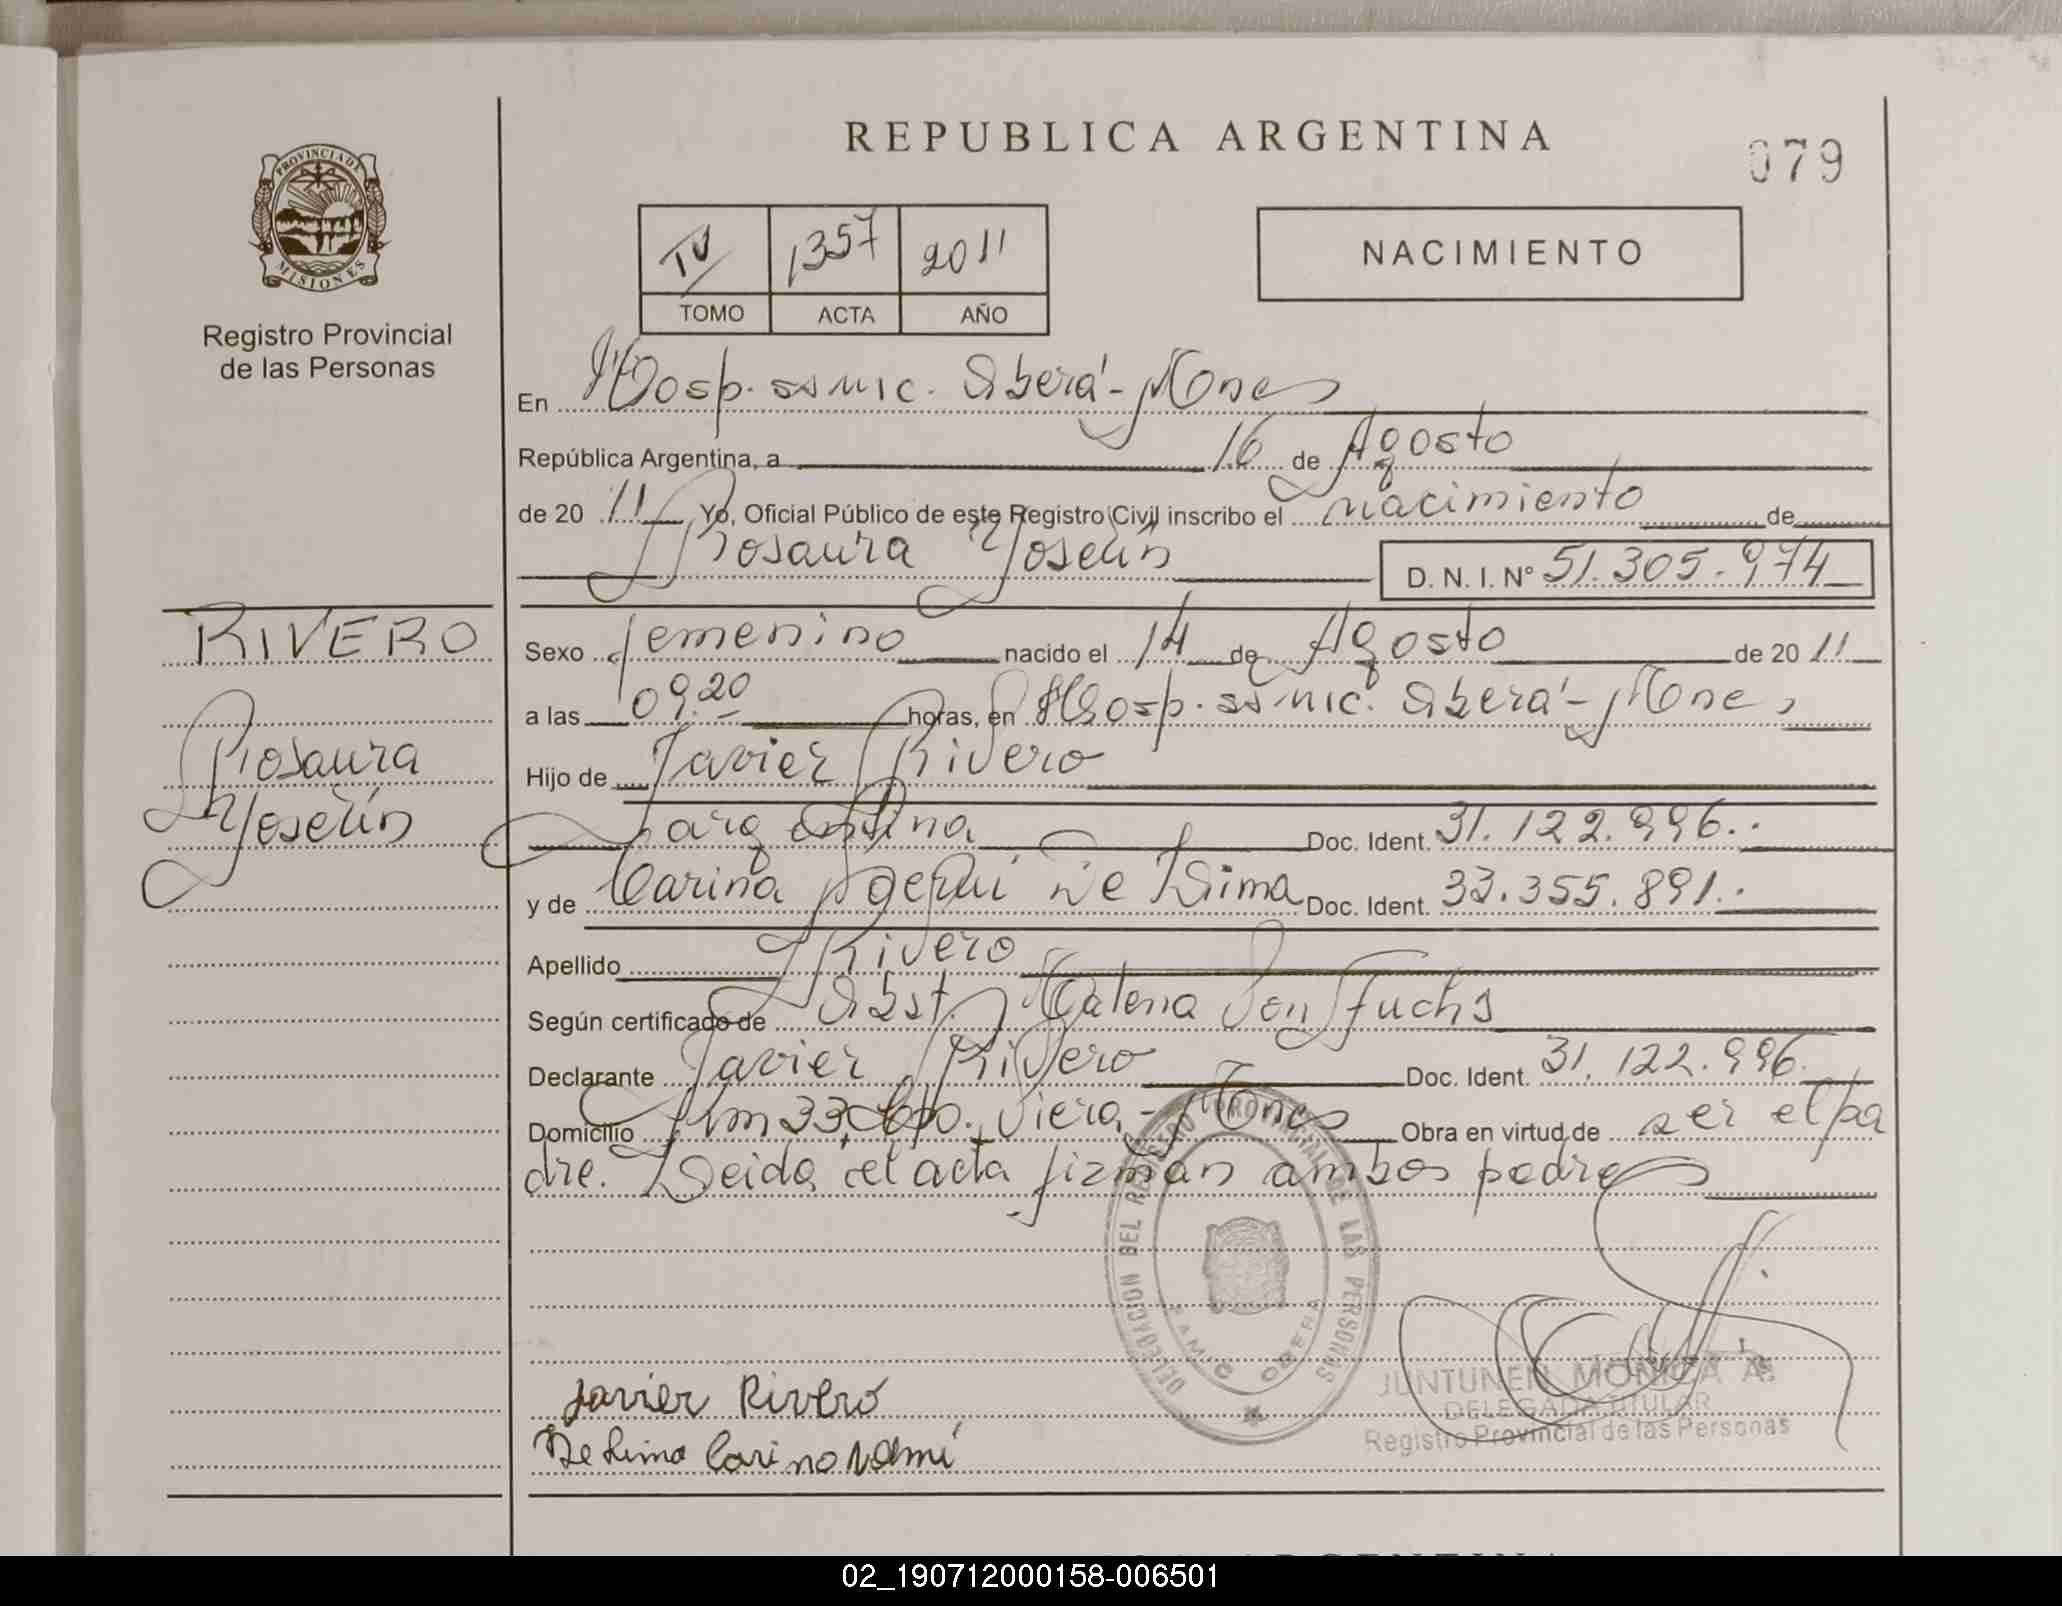 REPUBLICA ARGENTINA
079
PROVINCIA DE
MISIONES
Registro Provincial
de las Personas
IV 1357 2011
TOMO ACTA AÑO
NACIMIENTO
En Hosp. ssmic. Oberá-Mones
República Argentina, a 16 de Agosto
de 2011 Yo, Oficial Público de este Registro Civil inscribo el nacimiento de
Rosaura Yoselin
D. N. I. Nº 51.305.974
RIVERO
Rosaura
Yoselin
Sexo femenino nacido el 14 de Agosto de 2011
a las 09.20 horas, en Hosp. ssmic. Oberá-Mones
Hijo de Javier Rivero
argentina Doc. Ident. 31.122.996.
y de Carina De Lima Doc. Ident. 33.355.891.
Apellido Rivero
Según certificado de Obst. Malena Von Fuchs
Declarante Javier Rivero Doc. Ident. 31.122.996.
Domicilio Km 33, Cpo. Viera-Mones Obra en virtud de ser el pa
dre. Leida el acta firman ambos padres
DELEGACION DEL REGISTRO PROVINCIAL DE LAS PERSONAS
OBERA
Javier Rivero
De Lima Carina Noemí
JUNTUNEN MONICA A.
DELEGADA TITULAR
Registro Provincial de las Personas
02_190712000158-006501